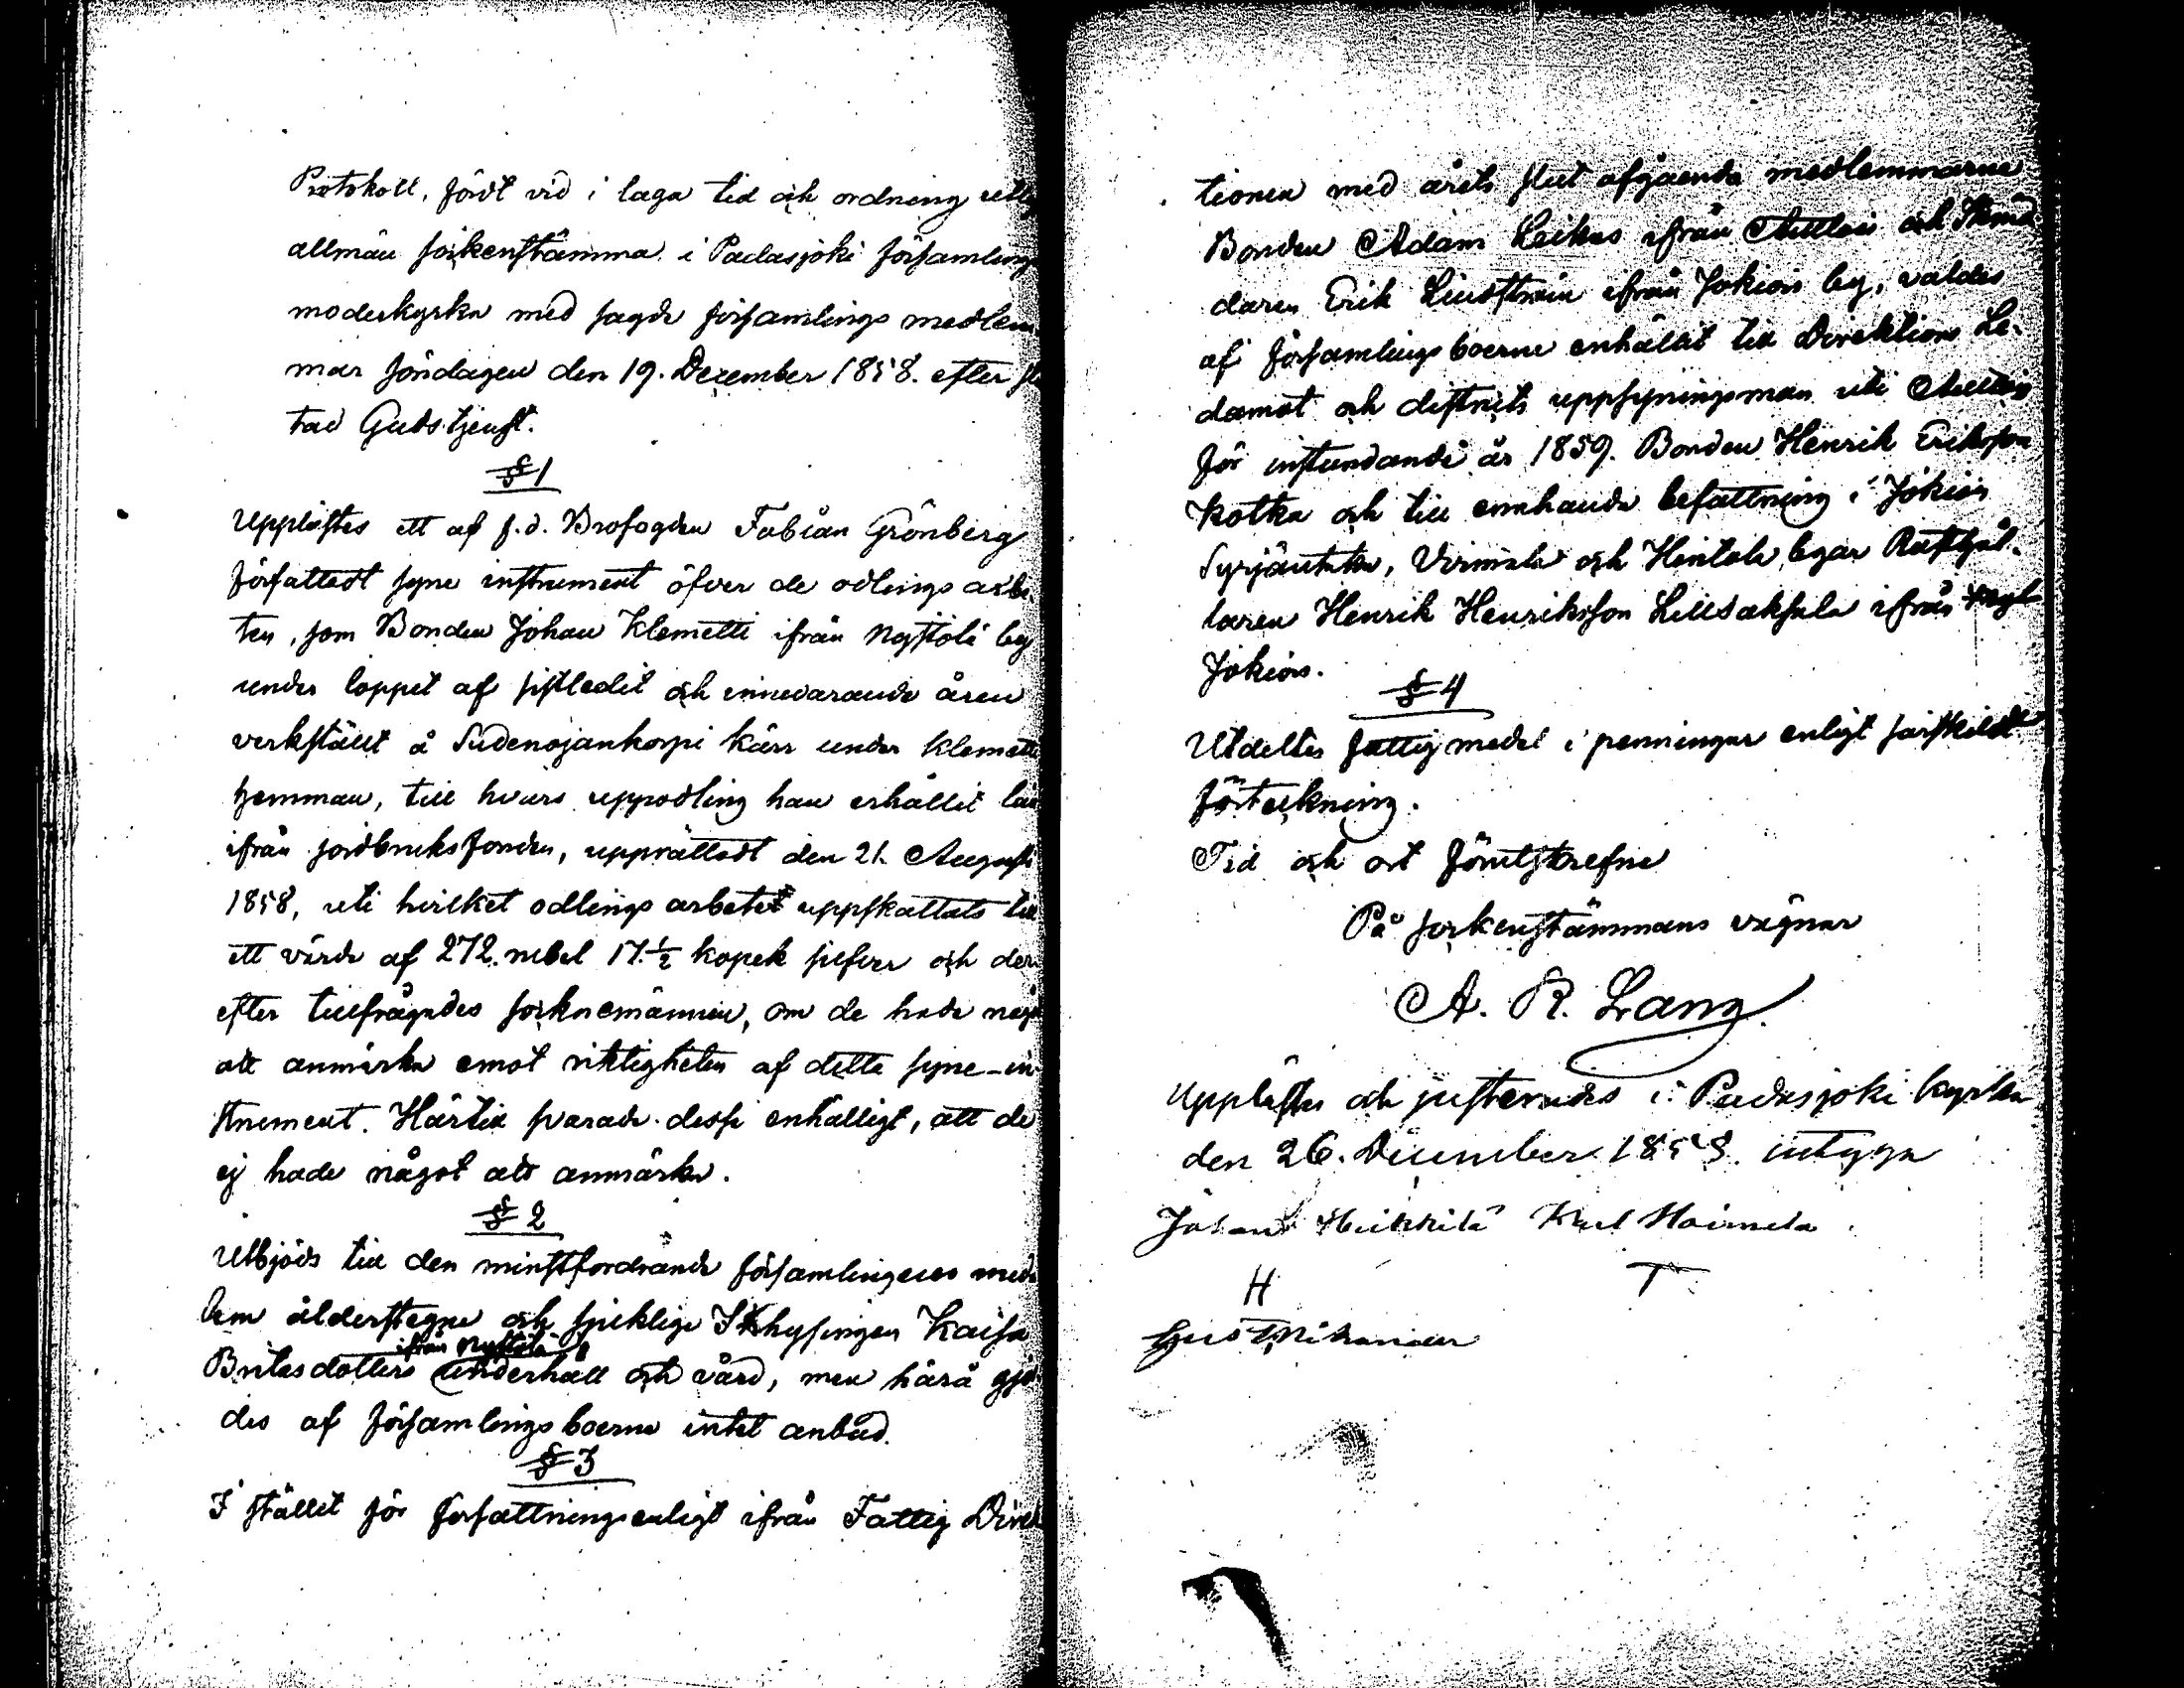 Protokoll, fördt vid i laga tid och ordning utl
allmän sockenstämma i Padasjoki församlings
moderkyrka med sagde församlings medlem
mar söndagen den 19. Dezember 1858. efter slu
tad Gudstjenst.
§ 1
Upplästes ett af f.d. Brofogden Fabian Grönberg
författadt syne instrument öfver de odlings arbe
ten, som Bonden Johan Klemetti ifrån Nystölä by
under loppet af sistledit och innevarande åren
verkstält å Sudenojankorpi kärr under Klemetti
hemman, till hvars uppodling han erhållit lån
ifrån jordbruksfonden, upprättadt den 21. Augusti
1858, uti hvilket odlings arbetet uppskattats till
ett värde af 272. rubel 17.½ kopek silfver och der
efter tillfrågades socknemännen, om de hade någ
att anmärka emot riktigheten af detta syne-in
strument. Härtill svarade desse enhälligt, att de
ej hade något att anmärka.
§ 2
Utbjöds till den minstfordrande församlingens med
lem ålderstegne och sjuklige Inhysingen Kaisa
ifrån Nystölä
Britasdotters underhåll och vård, men härå gjor
des af församlingsboerne intet anbud.
§ 3
I stället för författningsenligt ifrån Fattig Direk
tionen med årets slut afgående medlemmarne
Bonden Adam Leikas ifrån Auttois och
daren Erik Lindström ifrån Jokiois by, valdes
af församlingsboerne enhälligt till Direktions Le-
damot och distrikts uppsyningsman uti Auttois
för instundande år 1859. Bonden Henrik Eriksson
Kotka och till enahanda befattning i Jokiois
Syrjäntaka, Virmaila och Hinttola byar Rusthål-
laren Henrik Henriksson Lillsaksala ifrån
Jokiois.
§ 4
Utdeltes fattigmedel i penningar enligt särskildt
förteckning.
Tid och ort förutskrefne
På sockenstämmans vägnar
A. R. Lang
Upplästes och justerades i Padasjoki kyrka
den 26. December 1858. intyga
Johan Heikkilä Karl Hoimela
H T